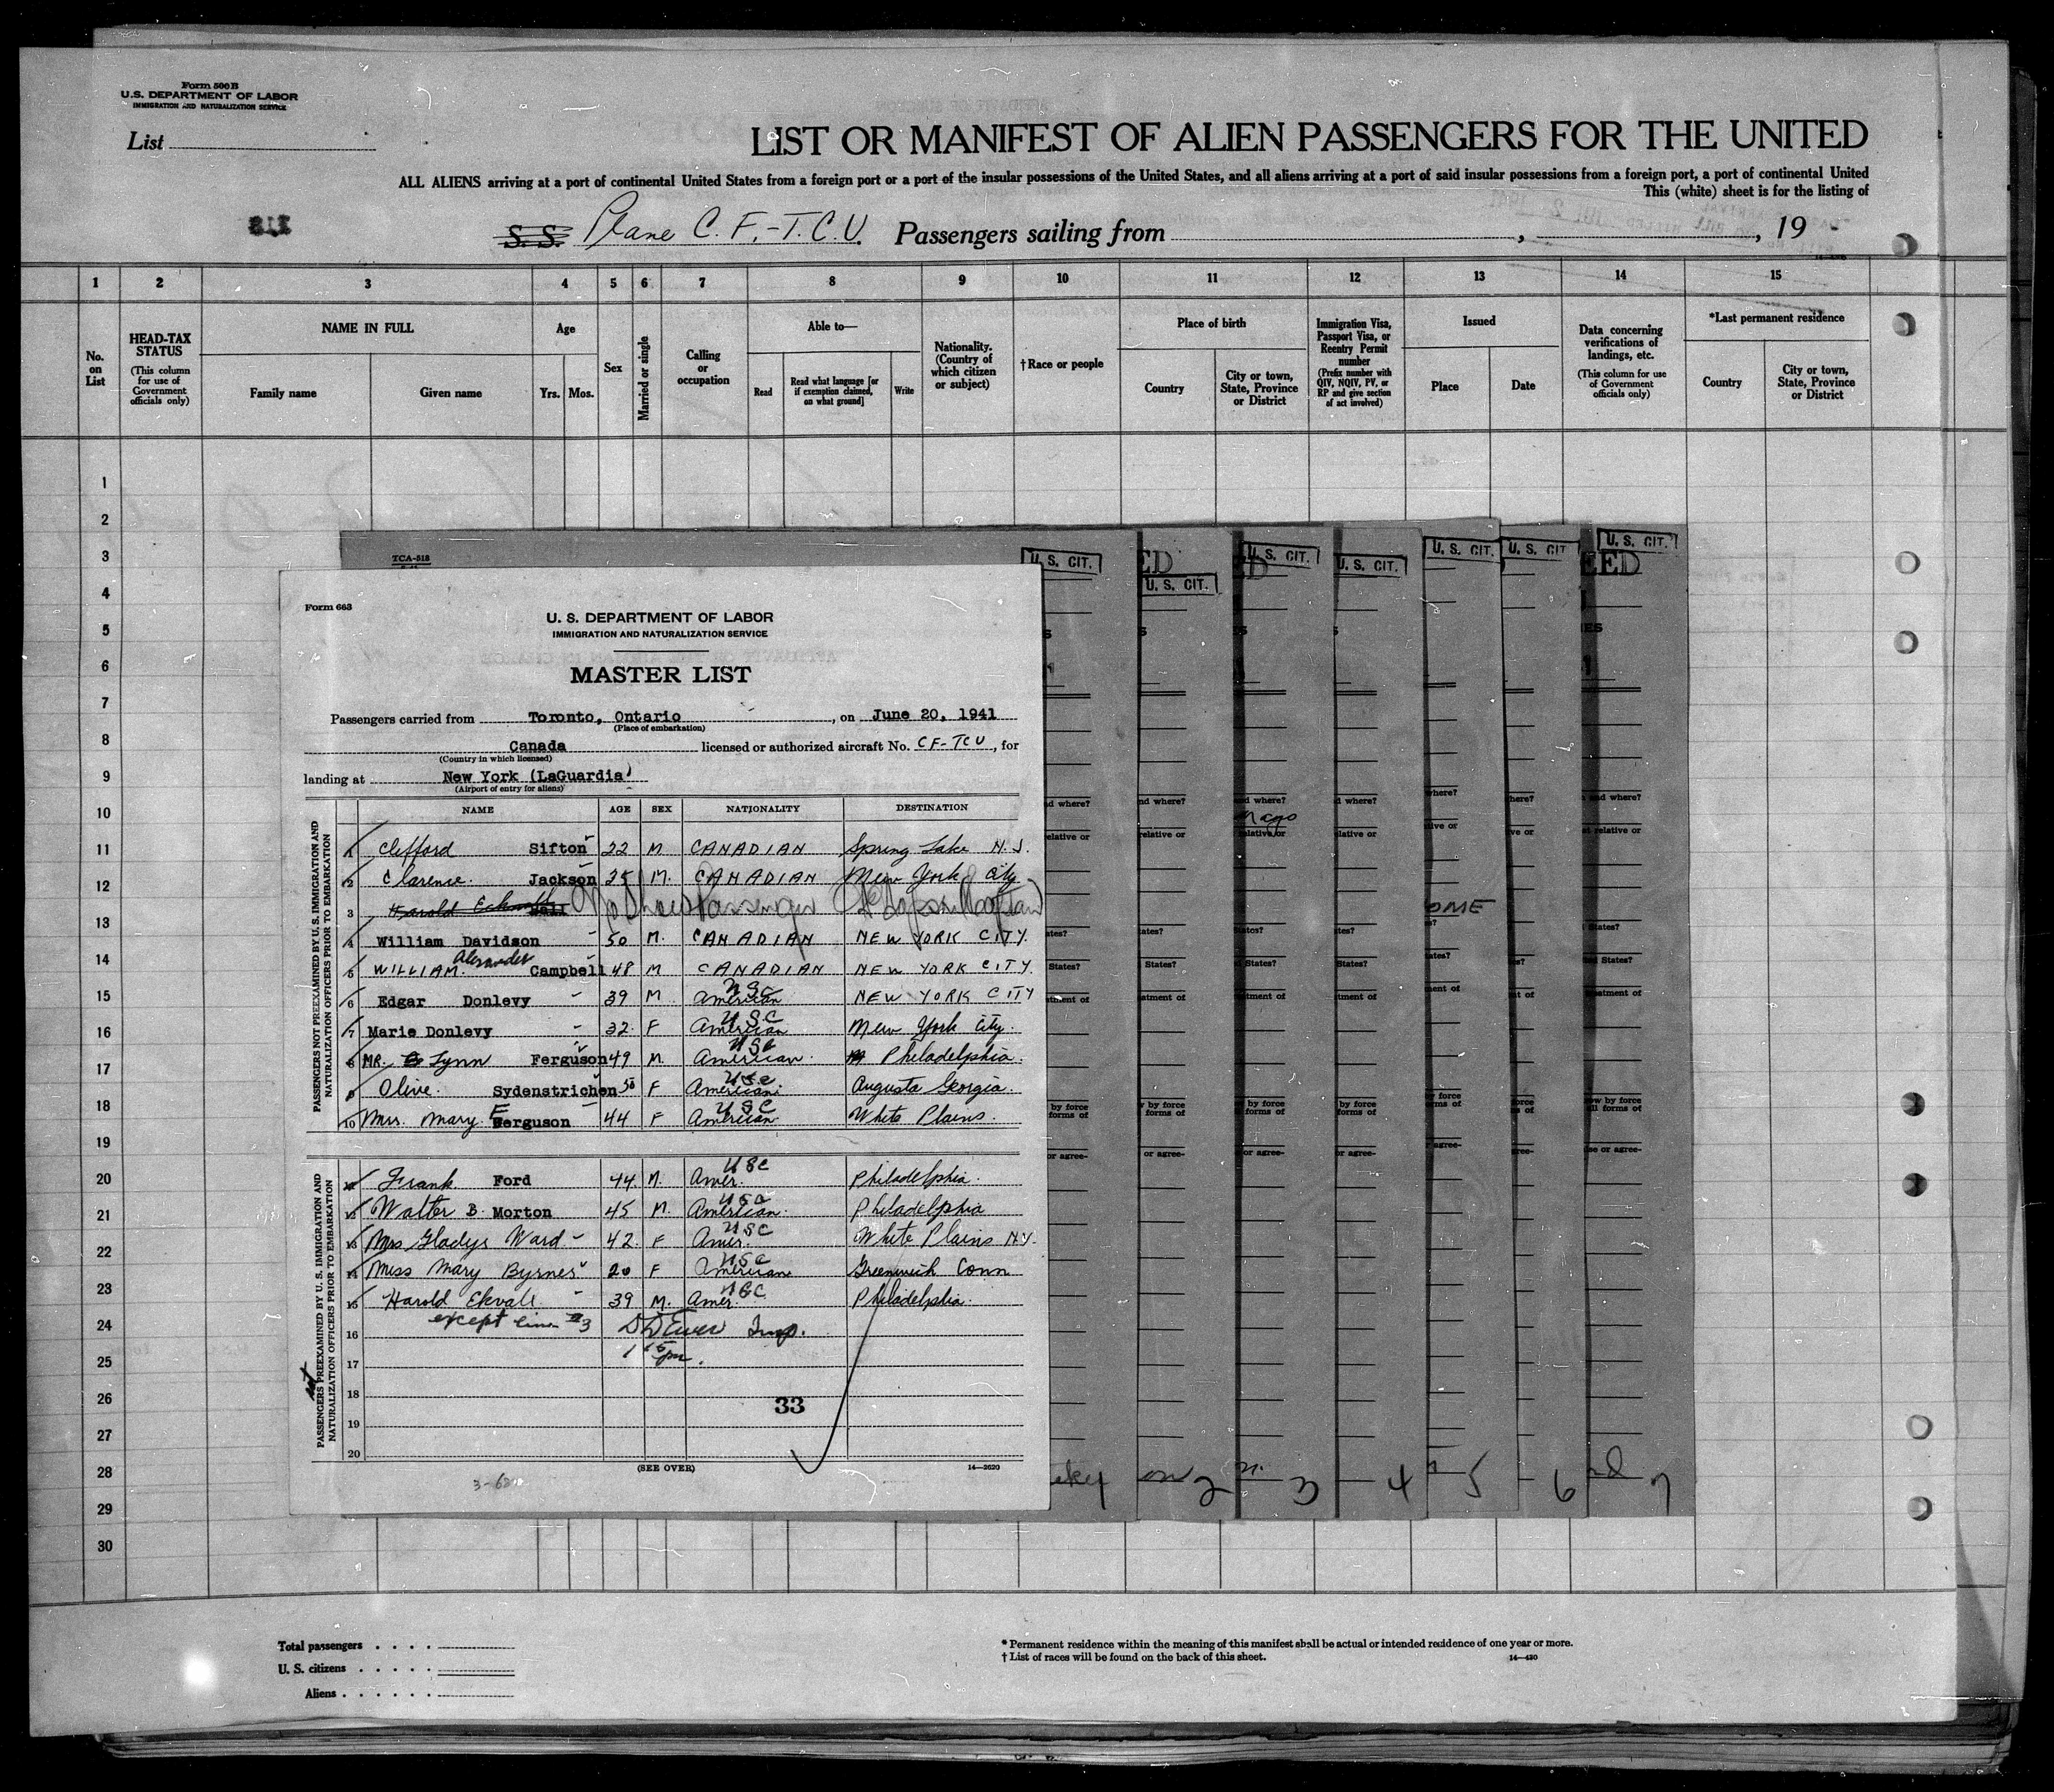 Form 500 B
U.S. DEPARTMENT OF LABOR
IMMIGRATION AND NATURALIZATION SERVICE
List
LIST OR MANIFEST OF ALIEN PASSENGERS FOR THE UNITED
ALL ALIENS arriving at a port of continental United States from a foreign port or a port of the insular possessions of the United States, and all aliens arriving at a port of said insular possessions from a foreign port, a port of continental United
This (white) sheet is for the listing of
S. S. Plane C. F.-T.C.U. Passengers sailing from , , 19
1 2 3 4 5 6 7 8 9 10 11 12 13 14 15
No. on List
HEAD-TAX STATUS
(This column for use of Government officials only)
NAME IN FULL
Family name Given name
Age
Yrs. Mos.
Sex
Married or single
Calling or occupation
Able to—
Read
Read what language [or if exemption claimed, on what ground]
Write
Nationality. (Country of which citizen or subject)
†Race or people
Place of birth
Country
City or town, State, Province or District
Immigration Visa, Passport Visa, or Reentry Permit number
(Prefix number with QIV, NQIV, PV, or RP and give section of act involved)
Issued
Place Date
Data concerning verifications of landings, etc.
(This column for use of Government officials only)
*Last permanent residence
Country
City or town, State, Province or District
1
2
3
4
5
6
7
8
9
10
11
12
13
14
15
16
17
18
19
20
21
22
23
24
25
26
27
28
29
30
TCA-518
U. S. CIT.
U. S. CIT.
U. S. CIT.
U. S. CIT.
U. S. CIT.
U. S. CIT.
U. S. CIT.
Form 663
U. S. DEPARTMENT OF LABOR
IMMIGRATION AND NATURALIZATION SERVICE
MASTER LIST
Passengers carried from Toronto, Ontario , on June 20, 1941
(Place of embarkation)
Canada licensed or authorized aircraft No. CF-TCU, for
(Country in which licensed)
landing at New York (LaGuardia)
(Airport of entry for aliens)
NAME AGE SEX NATIONALITY DESTINATION
PASSENGERS NOT PREEXAMINED BY U. S. IMMIGRATION AND NATURALIZATION OFFICERS PRIOR TO EMBARKATION
1 Clifford Sifton 22 M CANADIAN Spring Lake N.J.
2 Clarence. Jackson 35 M. CANADIAN New York City
3 Harold Passenger
4 William Davidson 50 M. CANADIAN NEW YORK CITY.
5 WILLIAM. Alexander Campbell 48 M CANADIAN NEW YORK CITY.
6 Edgar Donlevy 39 M American USC NEW YORK CITY
7 Marie Donlevy 32. F American USC New York City.
8 MR. Lynn Ferguson 49 M. American. USC Philadelphia.
9 Olive. Sydenstrichen 50 F American USC Augusta Georgia.
10 Mrs. Mary F Ferguson 44 F American USC White Plains.
PASSENGERS PREEXAMINED BY U. S. IMMIGRATION AND NATURALIZATION OFFICERS PRIOR TO EMBARKATION
not
11 Frank Ford 44 M. Amer. USC Philadelphia.
12 Walter B. Morton 45 M. American. USC Philadelphia
13 Mrs Gladys Ward 42. F Amer. USC White Plains N.Y.
14 Miss Mary Byrnes 20 F American USC Greenwich Conn
15 Harold Ekvall 39 M. Amer. USC Philadelphia.
except line #3
16 Insp.
17
18
33
19
20
(SEE OVER) 14—2620
Total passengers . . . .
U. S. citizens . . . . .
Aliens . . . . . .
* Permanent residence within the meaning of this manifest shall be actual or intended residence of one year or more.
† List of races will be found on the back of this sheet. 14—430